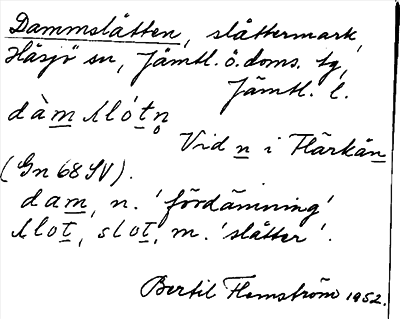 Dammslåtten, slåttermark,
Håsjö sn, Jämtl. ö. doms. tg,
Jämtl. l.
dàm slótn̥
Vid n i Flärkån
(Gn 68 SV).
dam, n. 'fördämning'
slot, slot, m. 'slåtter'.
Bertil Flemström 1952.